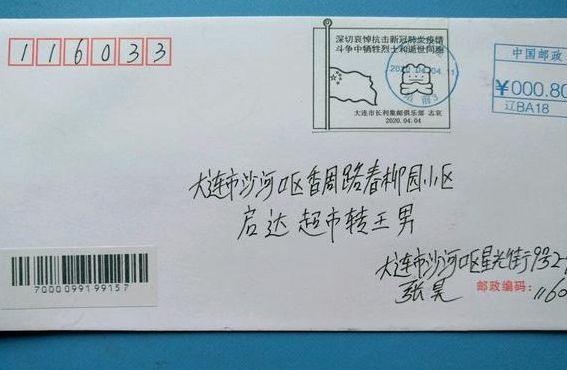 116033
深切哀悼抗击新冠肺炎疫情
斗争中牺牲烈士和逝世同胞
2020.04.04.11
大连市长利集邮俱乐部 志哀
2020.04.04
中国邮政
¥000.80
辽BA18
大连市沙河口区香周路春柳园小区
启达超市转王男
大连市沙河口区星光街9号2-
张昊
邮政编码：1160
7000099199157